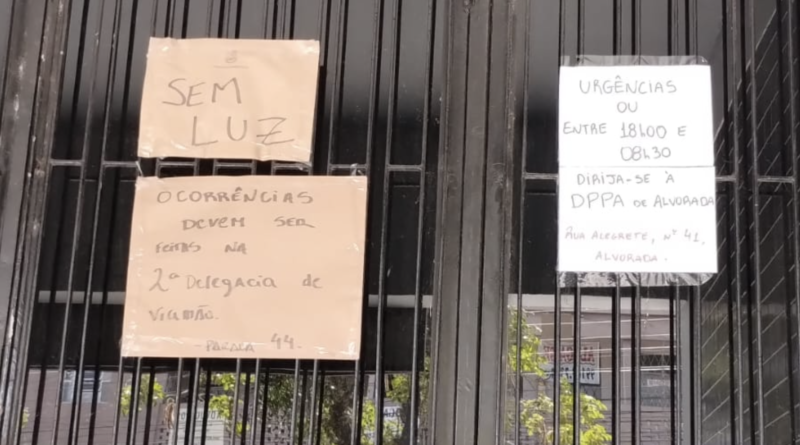 SEM
LUZ
OCORRÊNCIAS
DEVEM SER
FEITAS NA
2ª Delegacia de
VIAMÃO.
- PARADA 44 -
URGÊNCIAS
OU
ENTRE 18h00 E
08h30
DIRIJA-SE À
DPPA DE ALVORADA
RUA ALEGRETE, Nº 41,
ALVORADA.